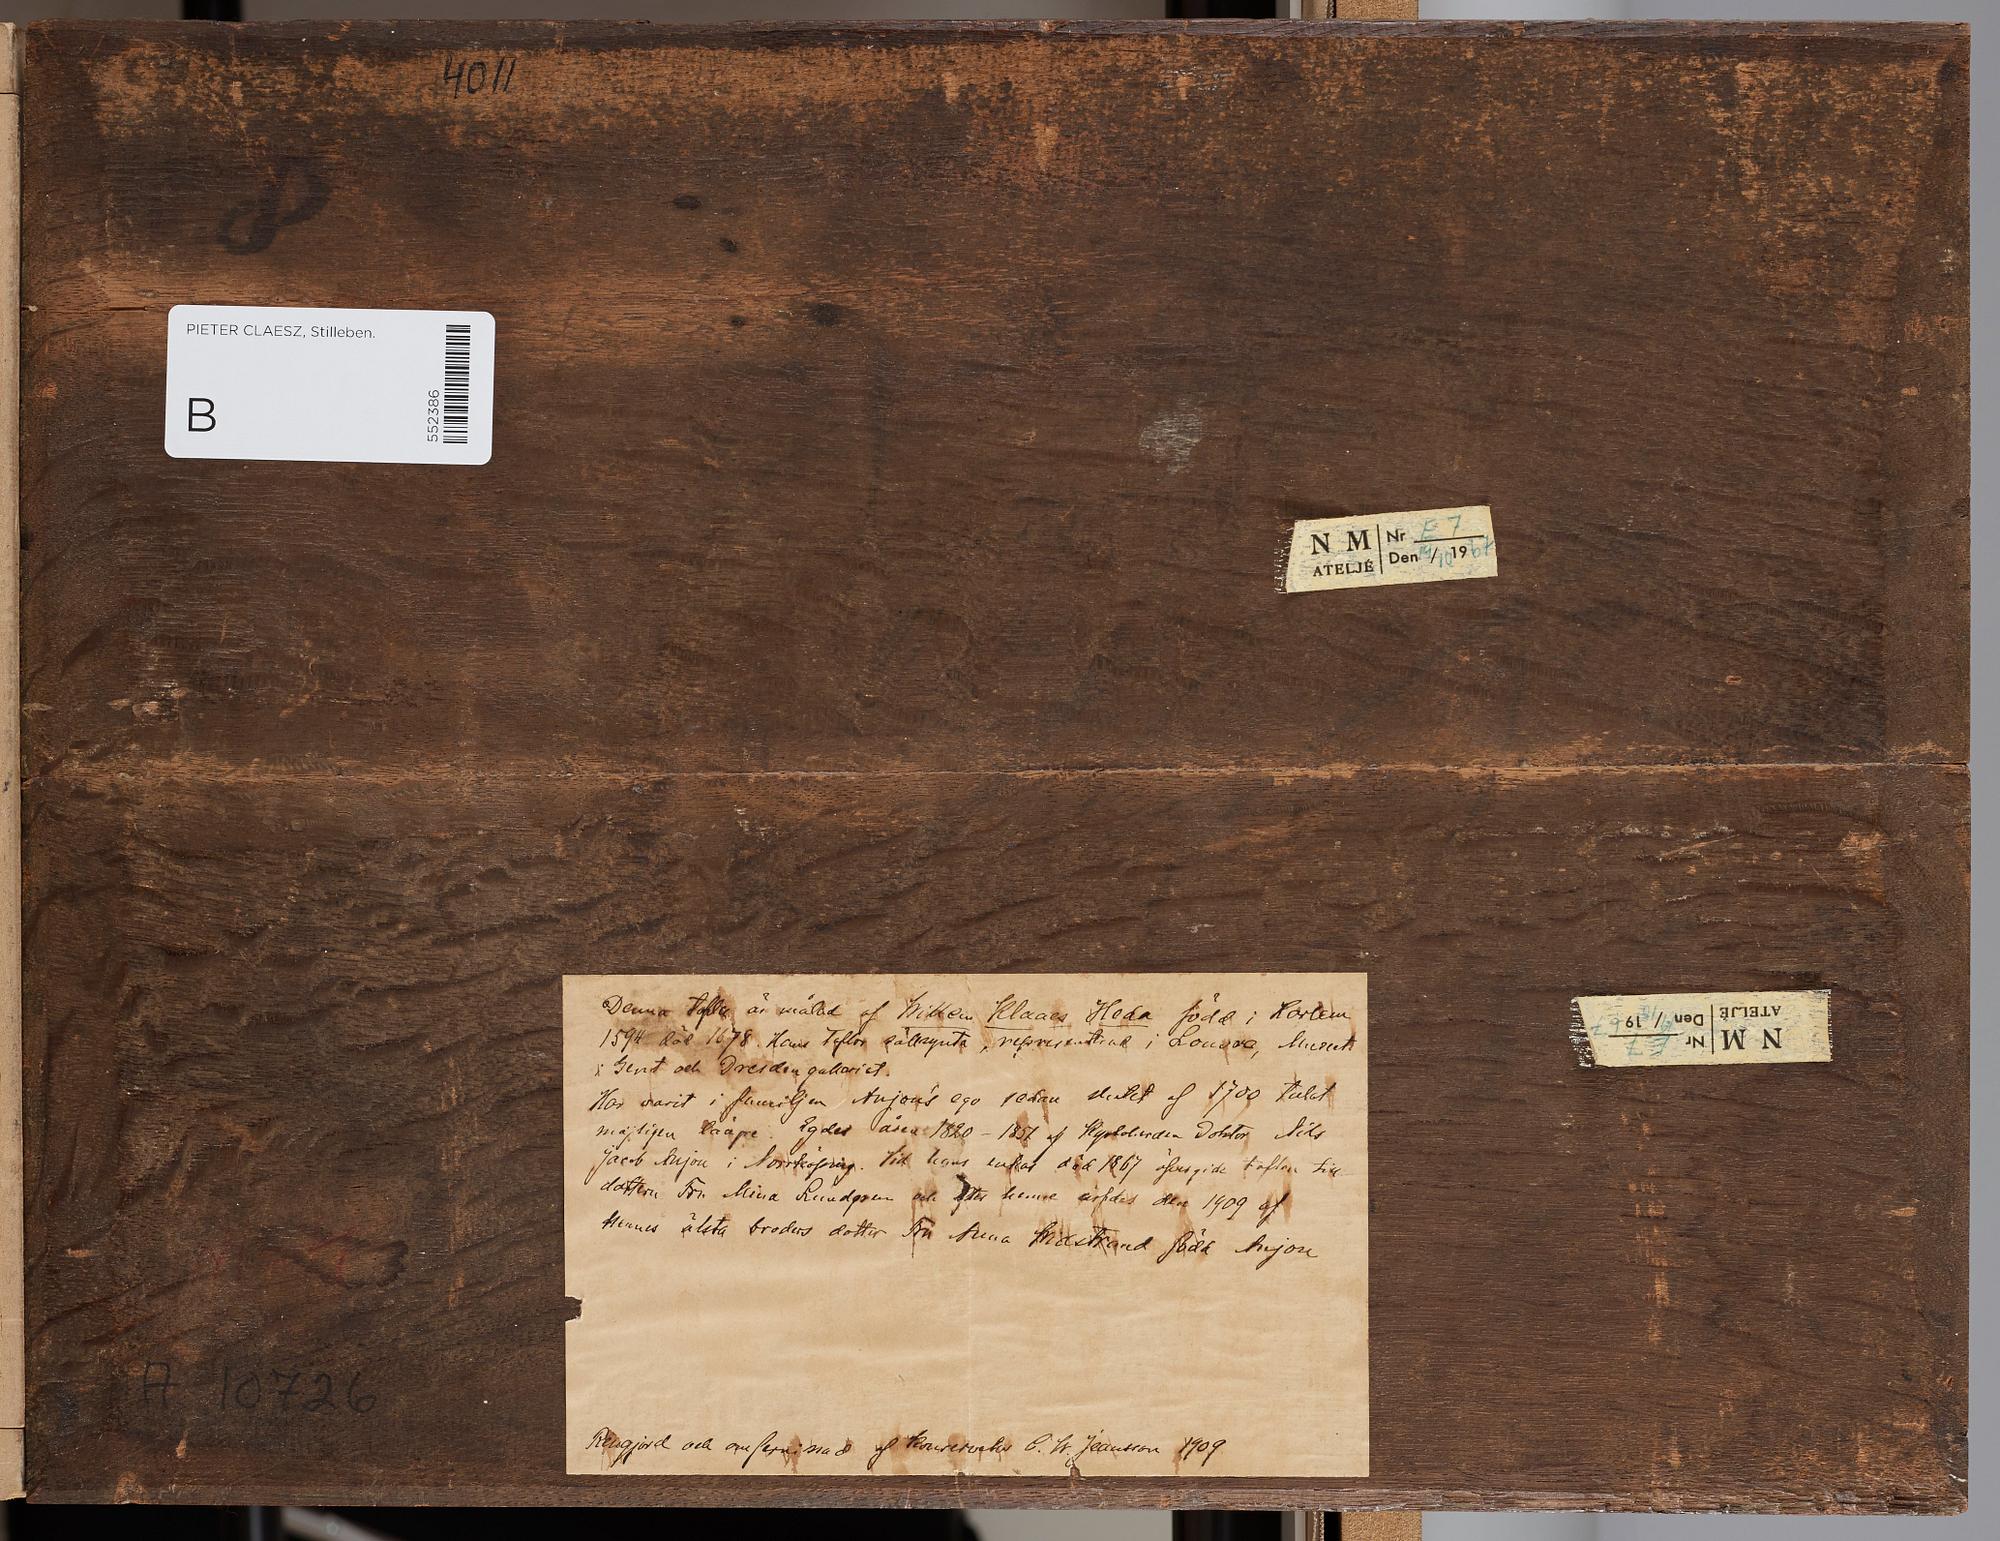 4011
PIETER CLAESZ, Stilleben.
B
552386
N M
ATELJÉ
Nr E 7
Den 19/10 1967
N M
ATELJÉ
Nr E 7
Den / 19 67
Denna tafla är målad af Willem Klaaes Heda född i Harlem
1594 död 1678. Hans taflor sällsynta, representerad i Louvre, Museet
i Gent och Dresdengalleriet.
Har varit i familjen Anjou's ego sedan slutet af 1700 talet
möjligen längre. Egdes åren 1820 - 1857 af Kyrkoherden Doktor Nils
Jacob Anjou i Norrköping. Vid hans enkas död 1867 öfvergick taflan till
dottern Fru Mina Lundgren och efter henne ärfdes den 1909 af
hennes älsta broders dotter Fru Anna Lindstrand född Anjou
Rengjord och omfernissad af Konservator C. W. Jaensson 1909
A 10726